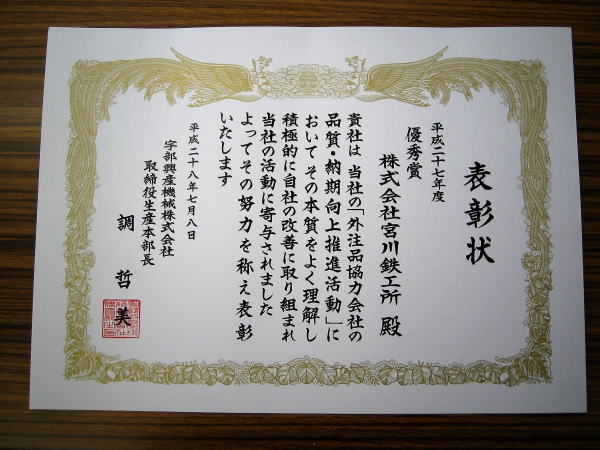 表彰状
平成二十七年度
優秀賞
株式会社宮川鉄工所 殿
貴社は 当社の「外注品協力会社の
品質・納期向上推進活動」に
おいて その本質をよく理解し
積極的に自社の改善に取り組まれ
当社の活動に寄与されました
よってその努力を称え表彰
いたします
平成二十八年七月八日
宇部興産機械株式会社
取締役生産本部長
調 哲